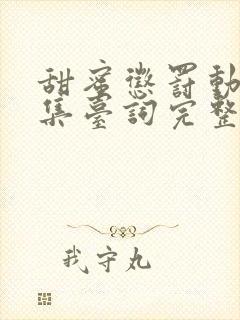 甜蜜懲罰動
集臺詞完整
我守丸